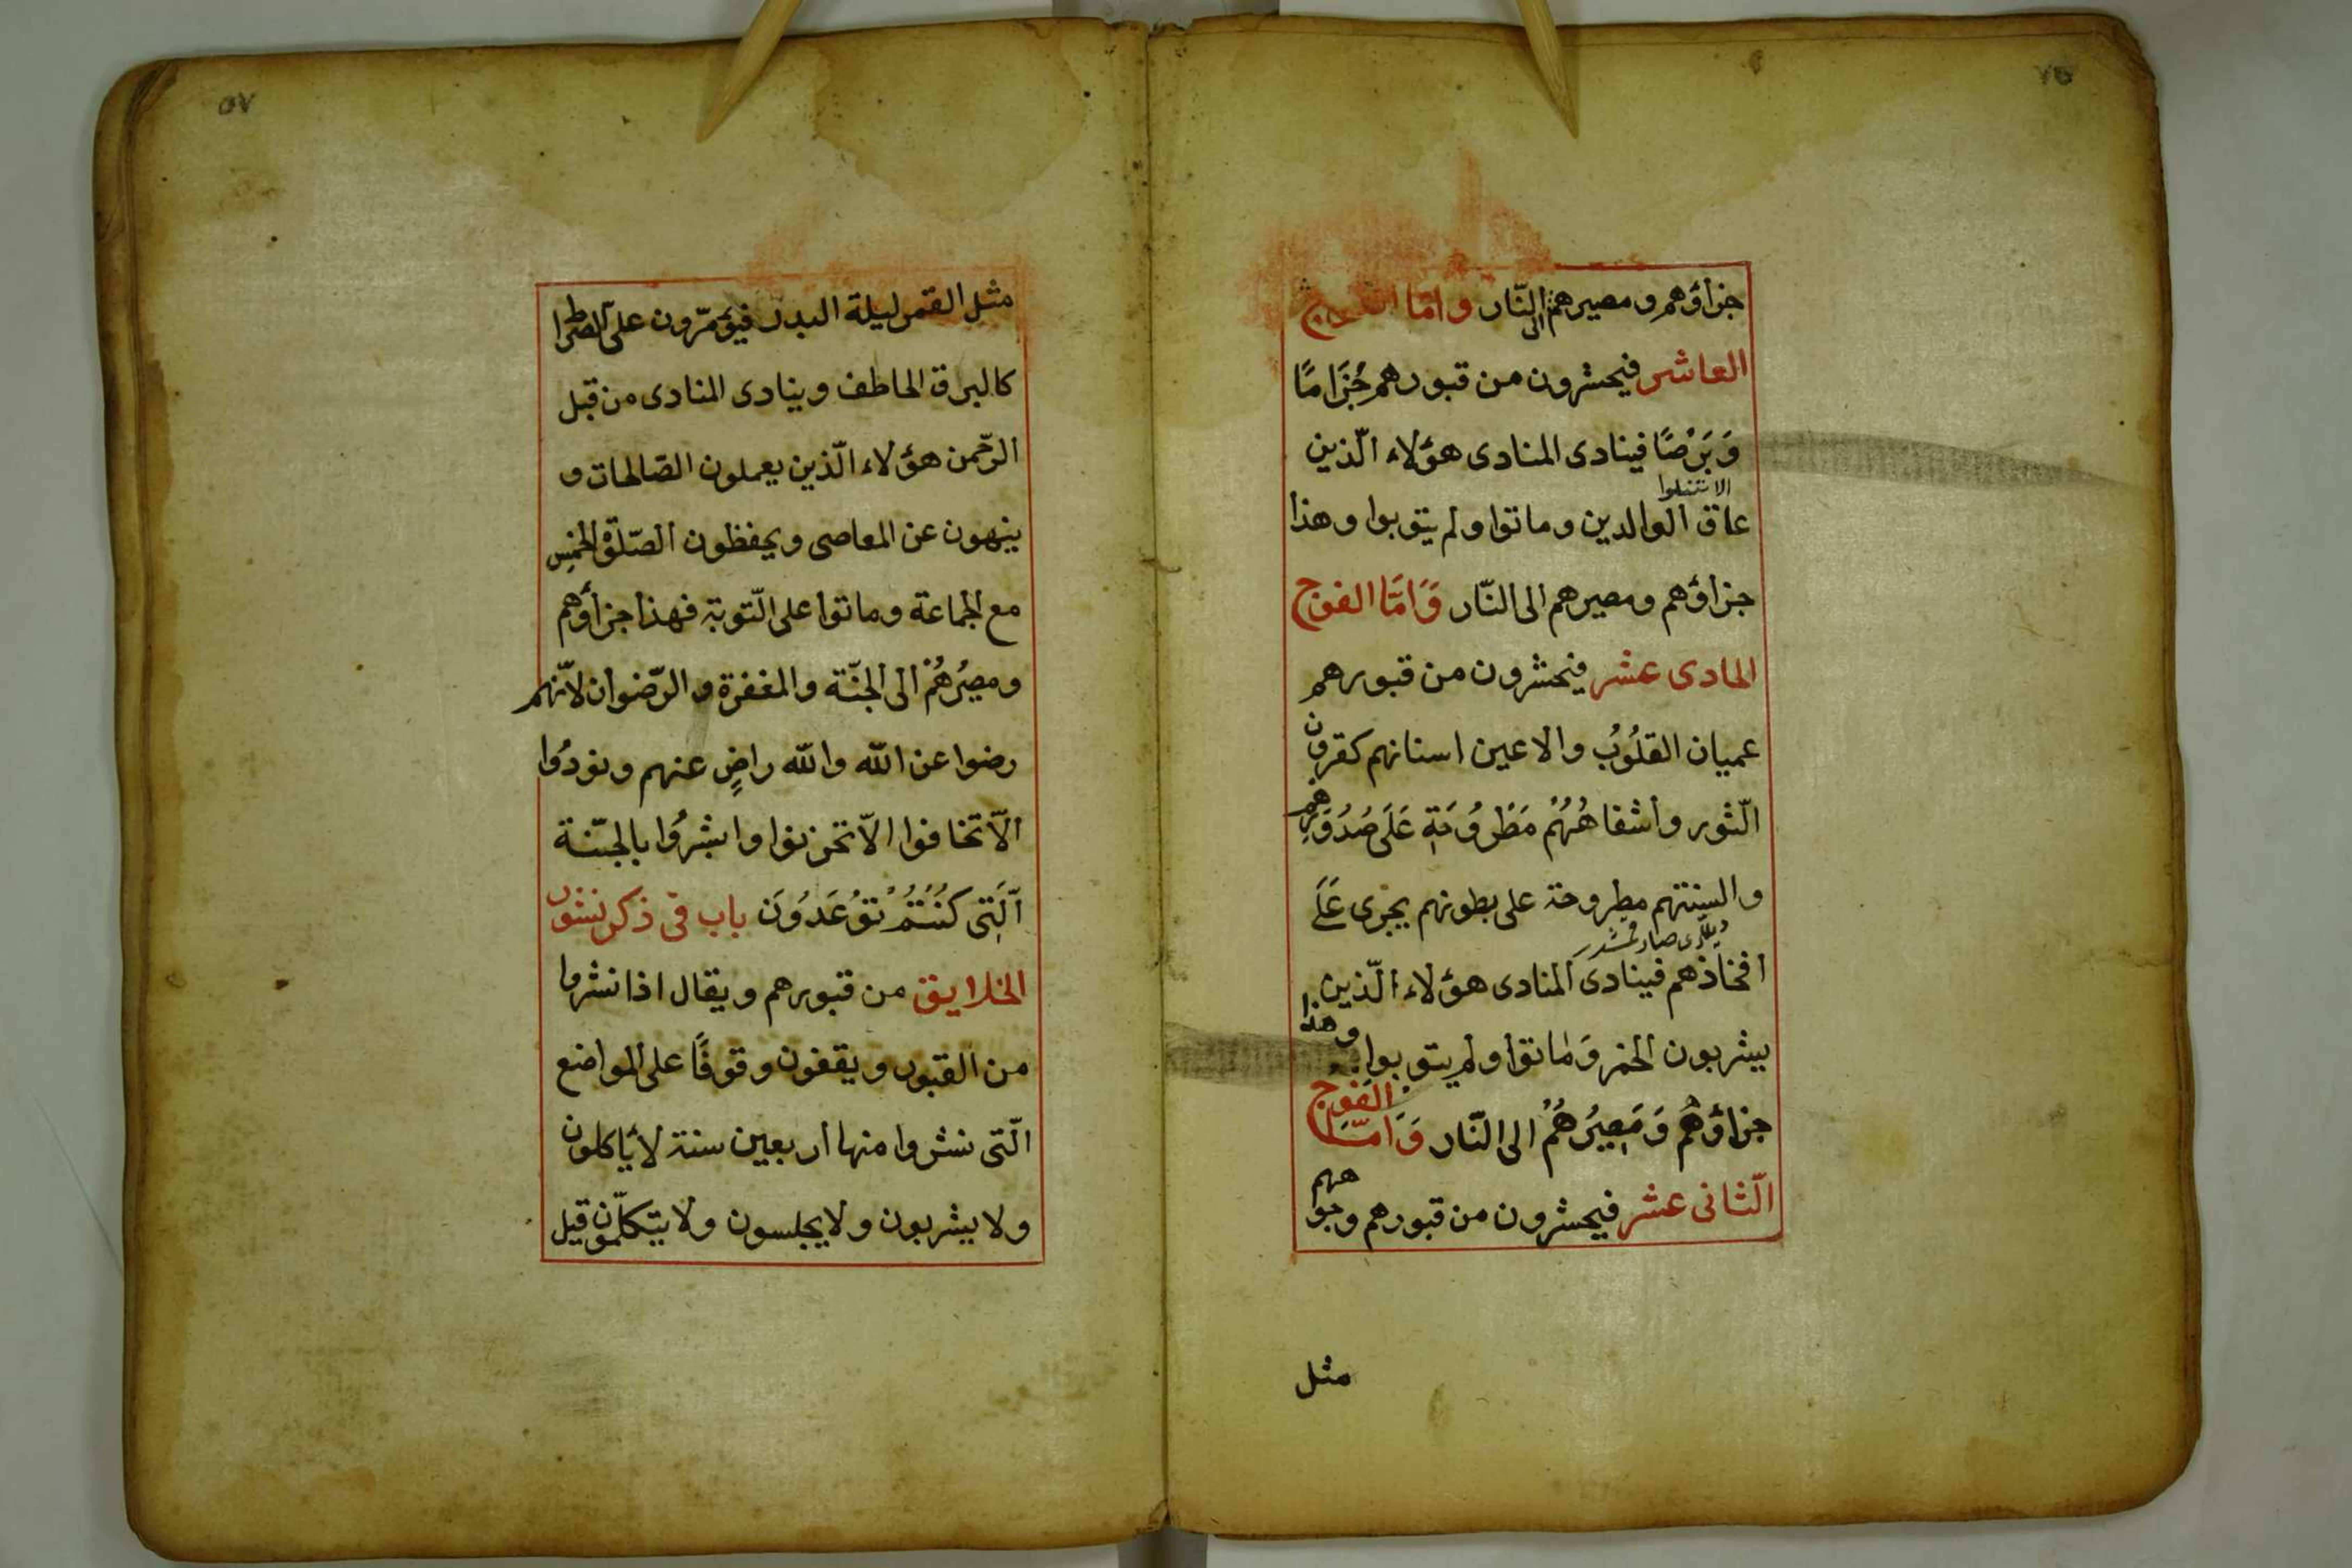 جزاؤهم ومصيرهم الى النّار وامّا الفوج
العاشر فيحشرون من قبورهم جُزَامًا
وَبَرْصًا فينادى المنادى هؤلاء الّذين
عاق الوالدين وماتوا ولم يتوبوا وهذا
جزاؤهم ومصيرهم الى النّار وَاَمَّا الفوج
الحادى عشر فيحشرون من قبورهم
عميان القلُوُبُ والاعين اسنانهم كقرون
الّثور واشفاهُهُمْ مَطْرُوُحَةٍ عَلَى صُدُوَرِهم
والسنتهم مطروحة على بطونهم يجرى عَلَى
افخاذهم فينادى المنادى هؤلاء الّذين
يشربون الخمر وَماتوا ولم يتوبوا وهذا
جزاؤهُم وَمَصِيرُهُمْ الى النّار وَاَمَّا الفَوج
الّثانى عشر فيحشرون من قبورهم وجوههم
مثل
٥٧
مثل القمر ليلة البدر فيؤمرّون على الصّراط
كالبرق الخاطف وينادى المنادى من قبل
الرّحمن هؤلاء الّذين يعملون الصّالحات و
ينهون عن المعاصى ويحفظون الصّلوة الخمس
مع الجماعة وماتوا على الّتوبة فهذا جزاؤهم
ومصيُرهُمْ الى الجنّة والمغفرة والرّضوان لانّهم
رضوا عن الله والله راضٍ عنهم ونودُوا
الّا تخافوا الاّ تحزنوا وابشِرُوا بالجنّة
اَلّتِى كُنْتُمْ تُوُعَدُوُنَ باب فى ذكر نشور
الخلايق من قبورهم ويقال اذا نشروا
من القبور ويقفون وقوفًا على المواضع
الّتى نشروا منها اربعين سنة لا يأكلون
ولا يشربون ولا يجلسون ولا يتكلّمون قيل